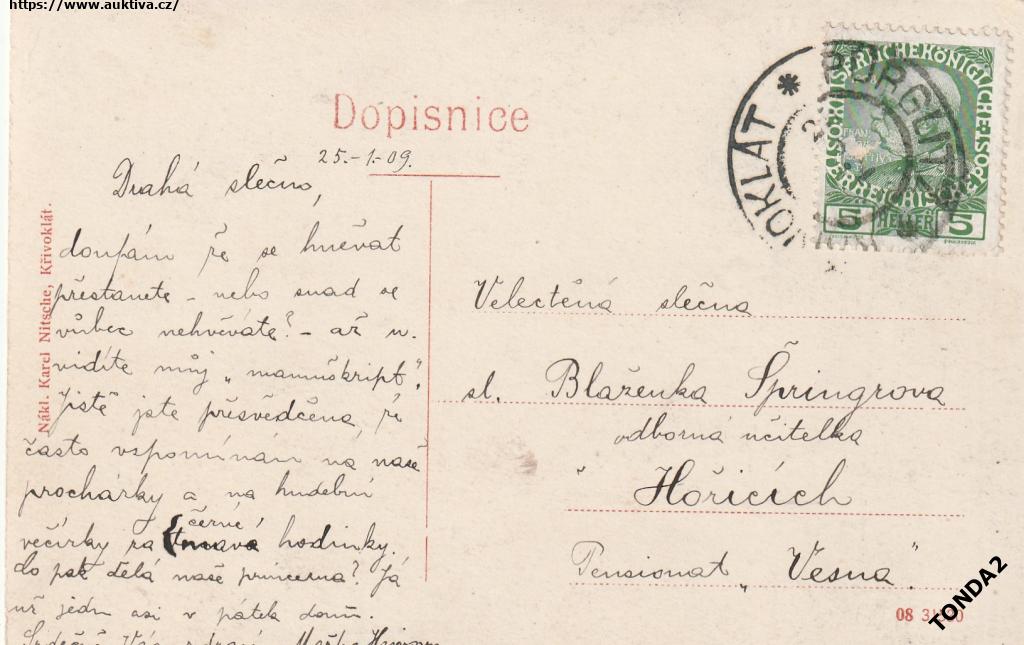 https://www.auktiva.cz/
Dopisnice
25.-1.-09.
Drahá slečno,
doufám že se hněvat
přestanete - nebo snad se
vůbec nehněváte? - až u-
vidíte můj „manuškript".
Jistě jste přesvědčena, že
často vzpomínám na naše
procházky a na hudební
večírky za černé hodinky.
Co pak dělá naše princezna? Já
už jedu asi v pátek domů.
Srdečně Vás zdraví
Nákl. Karel Nitsche, Křivoklát.
Velectěná slečna
sl. Blaženka Špringrova
odborná učitelka
v Hořicích
Pensionat „Vesna"
PÜRGLITZ
5 HELLER 5
08
TONDA2